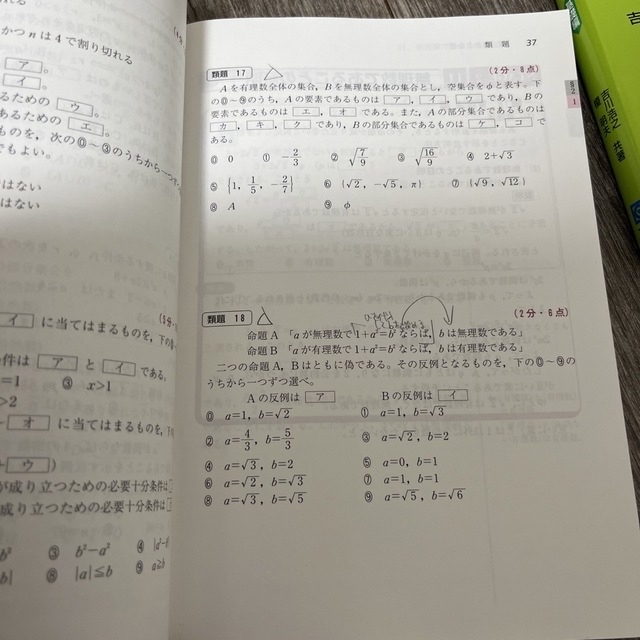 かつ n は 4 で割り切れる
ア 。
イ 。
るための ウ 。
あるための エ 。
ものを，次の⓪～③のうちから一つず
でもよい。
ではない
はない
イ に当てはまるものを，下の
条件は ア と イ である。
=1 ③ x>1
>2
オ に当てはまるものを，下の
ウ )
が成り立つための必要十分条件は
成り立つための必要十分条件は
b² ③ b²−a² ④
b| ⑧ |a|≦b ⑨ a≧
類 題 37
類題 17 (2分・8点)
A を有理数全体の集合，B を無理数全体の集合とし，空集合を φ と表す。下
の⓪～⑨のうち，A の要素であるものは ア ， イ ， ウ であり，B の
要素であるものは エ ， オ である。また，A の部分集合であるものは
カ ， キ ， ク であり，B の部分集合であるものは ケ ， コ で
ある。
⓪ 0 ① −2/3 ② √(7/9) ③ √(16/9) ④ 2+√3
⑤ {1, 1/5, −2/7} ⑥ {√2, −√5, π} ⑦ {√9, √12}
⑧ A ⑨ φ
類題 18 (2分・8点)
命題 A 「a が無理数で 1+a²=b² ならば，b は無理数である」
命題 B 「a が有理数で 1+a²=b² ならば，b は有理数である」
二つの命題 A，B はともに偽である。その反例となるものを，下の⓪～⑨の
うちから一つずつ選べ。
A の反例は ア B の反例は イ
⓪ a=1, b=√2 ① a=1, b=√3
② a=4/3, b=5/3 ③ a=√2, b=2
④ a=√3, b=2 ⑤ a=0, b=1
⑥ a=√2, b=√3 ⑦ a=1, b=1
⑧ a=√3, b=√5 ⑨ a=√5, b=√6
§2
1
吉川浩之
共著